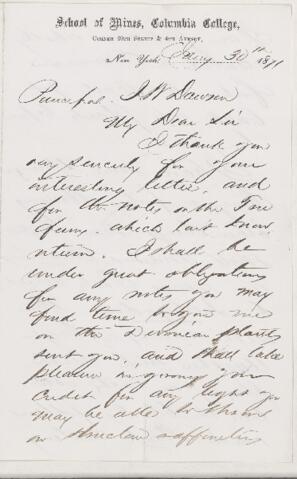 School of Mines, Columbia College,
Corner 49th Street & 4th Avenue,
New York Jany 30th 1871
Principal J W Dawson
My Dear Sir
I thank you
very sincerely for your
interesting letter, and
for the notes on the Tree
ferns, which last I now
return. I shall be
under great obligations
for any notes you may
find time to give me
on the Devonian plants
sent you, and shall take
pleasure in giving you
credit for any light you
may be able to throw
on their affinities